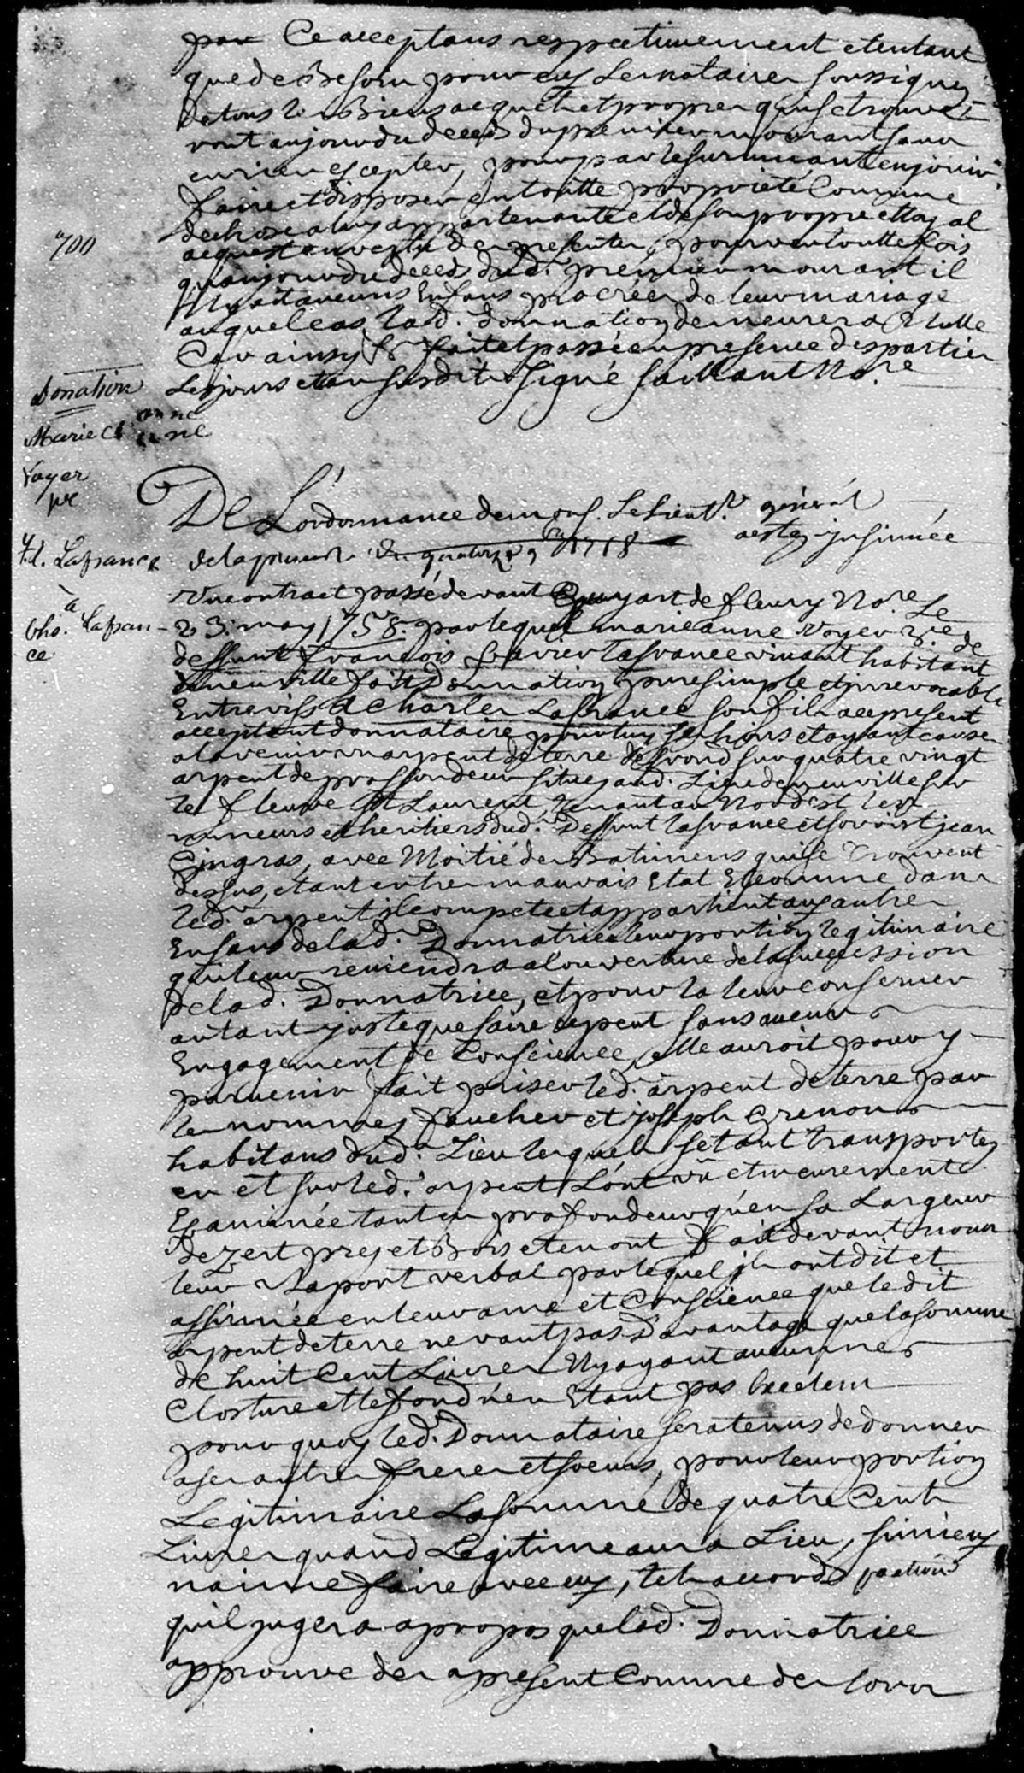 par Ce acceptans respectivement et entant
que de Besoin pour eux Le notaire soussigné
de tous les Biens acquets et propres qui se trouve
ront au jour du deced du premier mourant sans
en rien excepter, pour par le survivant en jouir
faire et disposer en toutte propriété Comme
de chose a luy appartenante et de son propre et loyal
acquest en vertu des presentes, pourvu touttefois
qu'au jour du deced dud. premier mourant il
n'y ait aucuns Enfans procréés de leur mariage
auquel cas lad. donnation demeurera Nulle
Car ainsy &c fait et passé en presence des parties
Les jours et an susdits signé saillant No.re
700
Donation
Marie et anne
Voyer
Vve
fd. Lafrance
à
Cho. Lafran-
ce
De L'ordonnance de mons. Le Lieut.t général
de la prevosté du quatorze 1758 acte insinuée
Vu contract passé devant Guyart de fleury No.re Le
23. may 1758. par lequel marie anne Voyer Vve de
deffunt francois Xavier lafrance vivant habitant
de neuville fait Donnation pure simple et irrevocable
Entrevifs A Charles Lafrance son fils a ce present
acceptant donnataire pour luy ses hoirs et ayant cause
a l'avenir un arpent de terre de front sur quatre vingt
arpent de proffondeur situé aud. Lieu de neuville sur
le fleuve St Laurent Tenant au Nordest les
mineurs et heritiers dud. Deffunt lafrance et sorroist jean
Gingras, avec Moitié des Batimens qui se Trouvent
dessus, etant en tres mauvais Etat Et comme dans
led. arpent il compete et appartient aux autres
Enfans de lad. Donnatrice leur portion legitimaire
qui leur reviendra a l'ouverture de la succession
De lad. Donnatrice, et pour la leur conserver
autant juste que faire ce peut sans aucuns
Engagement de Conscience, elle auroit pour y
parvenir fait priser led. arpent de terre par
le nommés faucher et joseph Grenons
habitans dud. Lieu lesquels setant transportés
en et sur led. arpent L'ont vu et meurement
Examinée tant en profondeur qu'en sa Largeur
dezert prez et Bois et en ont fait devant nous
leur Raport verbal par lequel ils ont dit et
affirmée en leur ame et Conscience que le dit
arpent de terre ne vaut pas Davantage que la somme
de huit Cent Livres N'y ayant aucunnes
Closture et le fond n'en Etant pas Excélent
pour quoy led. Donnataire sera tenus de donner
a ses autres freres et soeurs, pour leur portion
Legitimaire La somme de quatre Cents
Livres quand Legitime aura Lieu, si mieux
n'aime faire avec eux, tels accords pactions
qu'il jugera a propos que lad. Donnatrice
approuve des a present Comme des lors